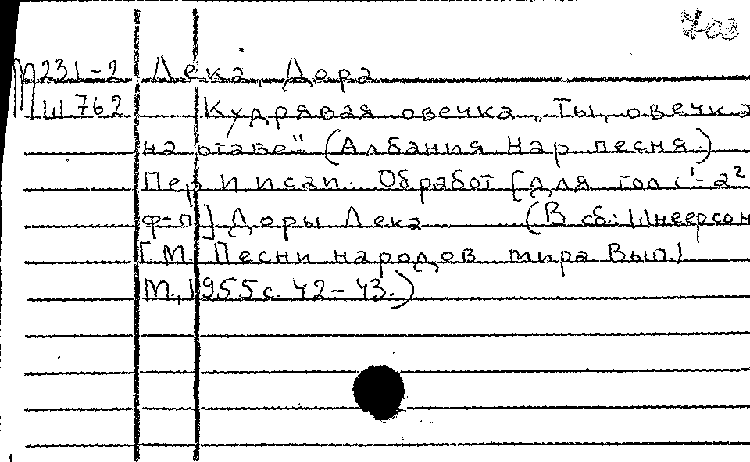 703
М 231-2 Лека, Дора
Ш 762 Кудрявая овечка „Ты, овечка
на отаве" (Албания Нар песня.)
Пер И исап. Обработ [для гол с
ф-п] Доры Лека (В сб: Шнеерсон
Г.М. Песни народов мира Вып 1
М, 1955 с. 42-43.)